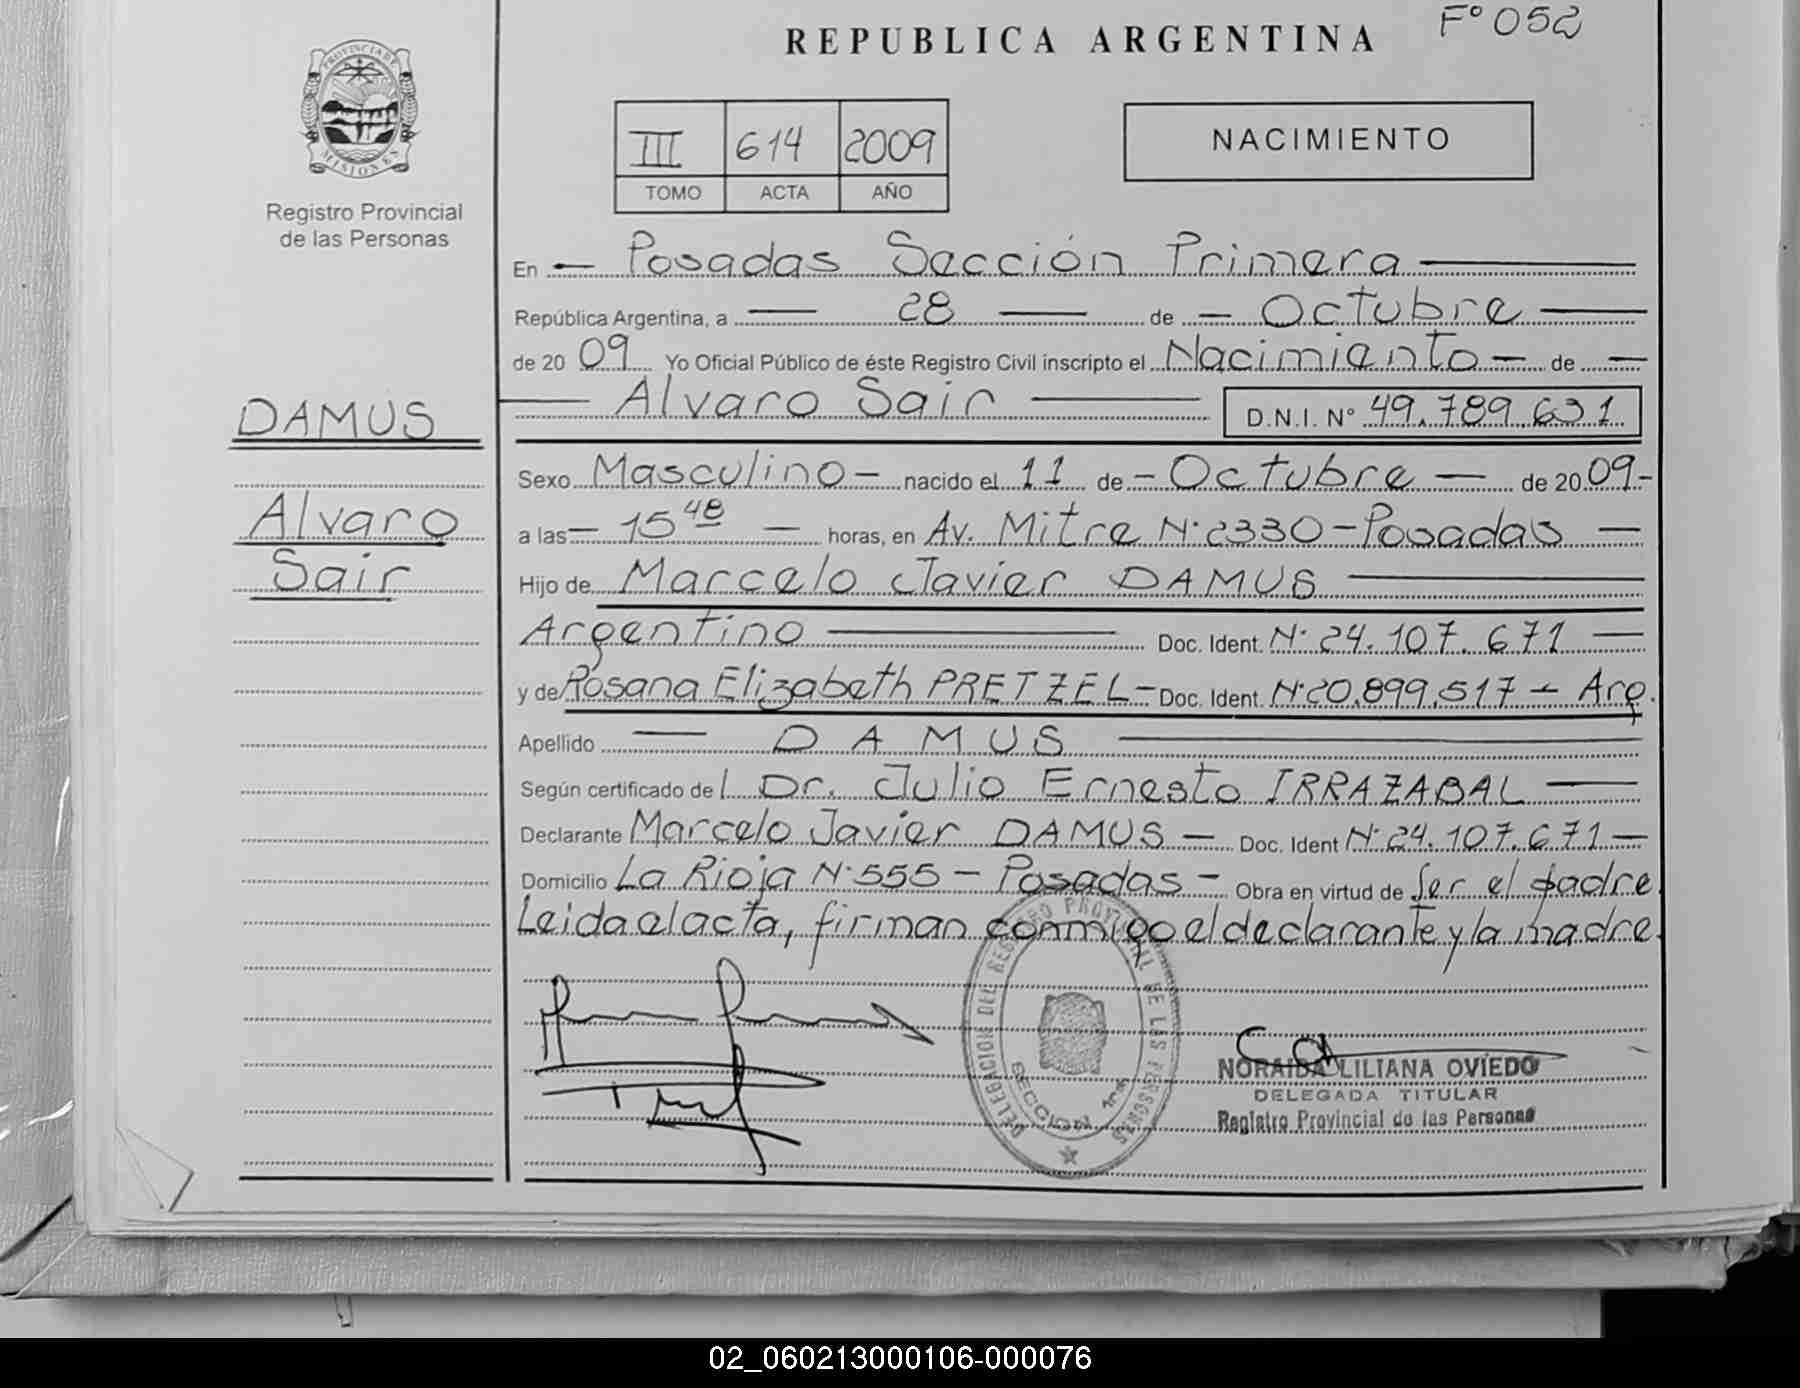 REPUBLICA ARGENTINA
Fº 052
PROVINCIA DE
MISIONES
Registro Provincial
de las Personas
III 614 2009
TOMO ACTA AÑO
NACIMIENTO
En — Posadas Sección Primera —
República Argentina, a — 28 — de — Octubre —
de 20 09 Yo Oficial Público de éste Registro Civil inscripto el Nacimiento — de —
— Alvaro Sair — D.N.I. Nº 49.789.631
DAMUS
Alvaro
Sair
Sexo Masculino — nacido el 11 de — Octubre — de 20 09 -
a las — 15 48 — horas, en Av. Mitre Nº 2330 - Posadas —
Hijo de Marcelo Javier DAMUS —
Argentino — Doc. Ident. Nº 24.107.671 —
y de Rosana Elizabeth PRETZEL — Doc. Ident. Nº 20.899.517 — Arg.
Apellido — DAMUS —
Según certificado del Dr. Julio Ernesto IRRAZABAL —
Declarante Marcelo Javier DAMUS — Doc. Ident Nº 24.107.671 —
Domicilio La Rioja Nº 555 — Posadas — Obra en virtud de Ser el padre
Leida el acta, firman conmigo el declarante y la madre.
DELEGACION DEL REGISTRO PROVINCIAL DE LAS PERSONAS
SECCION 1ra
NORAIDA LILIANA OVIEDO
DELEGADA TITULAR
Registro Provincial de las Personas
02_060213000106-000076